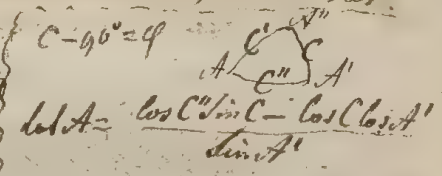 C - 90° = φ
A C' A'' C C'' A'
Cot A = (Cos C'' Sin C - Cos C Cos A') / Sin A'